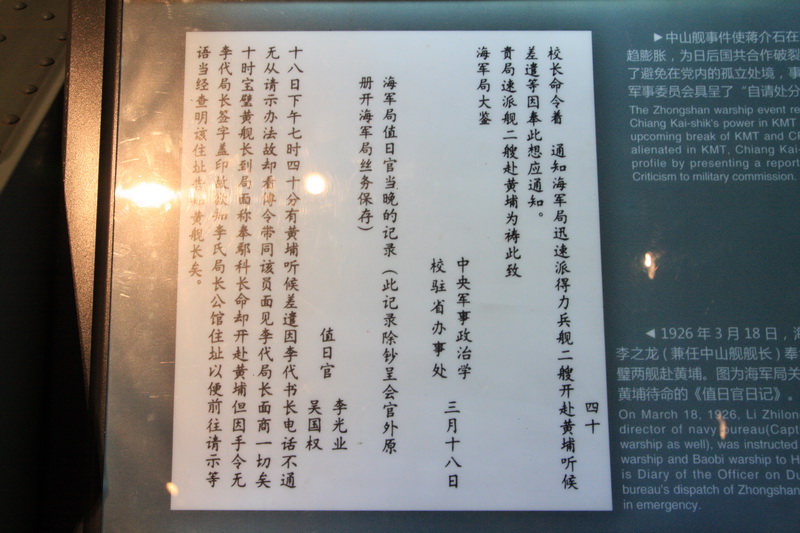 四十
校长命令着 通知海军局迅速派得力兵舰二艘开赴黄埔听候
差遣等因奉此想应通知。
贵局速派舰二艘赴黄埔为祷此致
海军局大鉴
中央军事政治学
校驻省办事处 三月十八日
海军局值日官当晚的记录(此记录除钞呈会官外原
册开海军局丝务保存)
值日官 李光业
吴国权
十八日下午七时四十分有黄埔听候差遣因李代书长电话不通
无从请示办法故却看傅令带同该员面见李代局长面商一切矣
十时宝壁黄舰长到局面称奉鄢科长命却开赴黄埔但因手令无
李代局长签字盖印故欲知李氏局长公馆住址以便前往请示等
语当经查明该住址 黄舰长矣。
▶中山舰事件使蒋介石在
趋膨胀,为日后国共合作破裂
了避免在党内的孤立处境,事
军事委员会具呈了“自请处分
The Zhongshan warship event re
Chiang Kai-shik's power in KMT
upcoming break of KMT and C
alienated in KMT, Chiang Kai-
profile by presenting a report
Criticism to military commission.
◀1926年3月18日,海
李之龙(兼任中山舰舰长)奉
璧两舰赴黄埔。图为海军局关
黄埔待命的《值日官日记》。
On March 18, 1926, Li Zhilon
director of navy bureau(Capt
warship as well), was instructed
warship and Baobi warship to H
is Diary of the Officer on Du
bureau's dispatch of Zhongshan
in emergency.